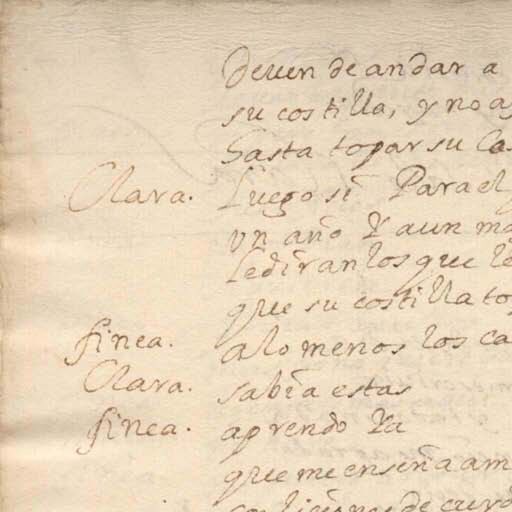 Deven de andar a
su costilla, y no a
hasta topar su Cas
Clara. Luego si Para el
vn año Ya aun ma
le diran los que le
que su costilla to
finea. alo menos los ca
Clara. sabia estas
finea. aprendo Ya
que me enseña am